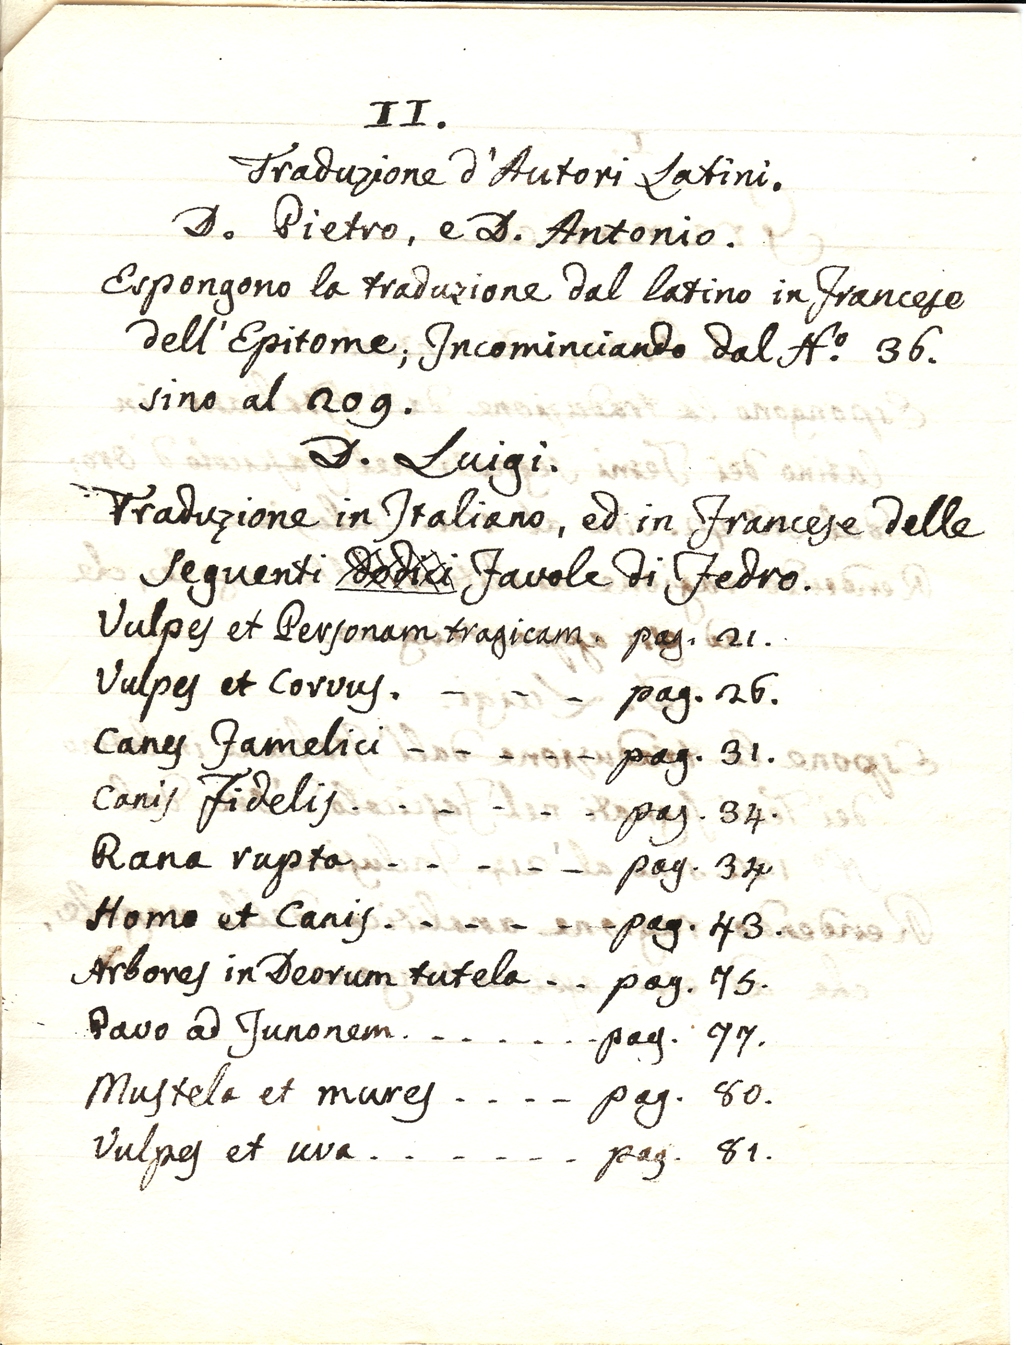 II.
Traduzione d'Autori Latini.
D. Pietro, e D. Antonio.
Espongono la traduzione dal latino in Francese
dell'Epitome, Incominciando dal N.º 36.
sino al 209.
D. Luigi.
Traduzione in Italiano, ed in Francese delle
seguenti dodici Favole di Fedro.
Vulpes et Personam tragicam. pag. 21.
Vulpes et Corvus. - - - pag. 26.
Canes Famelici - - - - - - pag. 31.
Canis Fidelis. - - - - - pag. 34.
Rana rupta. - - - - - pag. 34
Homo et Canis. - - - - - pag. 43.
Arbores in Deorum tutela . . pag. 75.
Pavo ad Junonem. . . . . . . pag. 77.
Mustela et mures . . . - pag. 80.
Vulpes et uva . . . . . . . pag. 81.